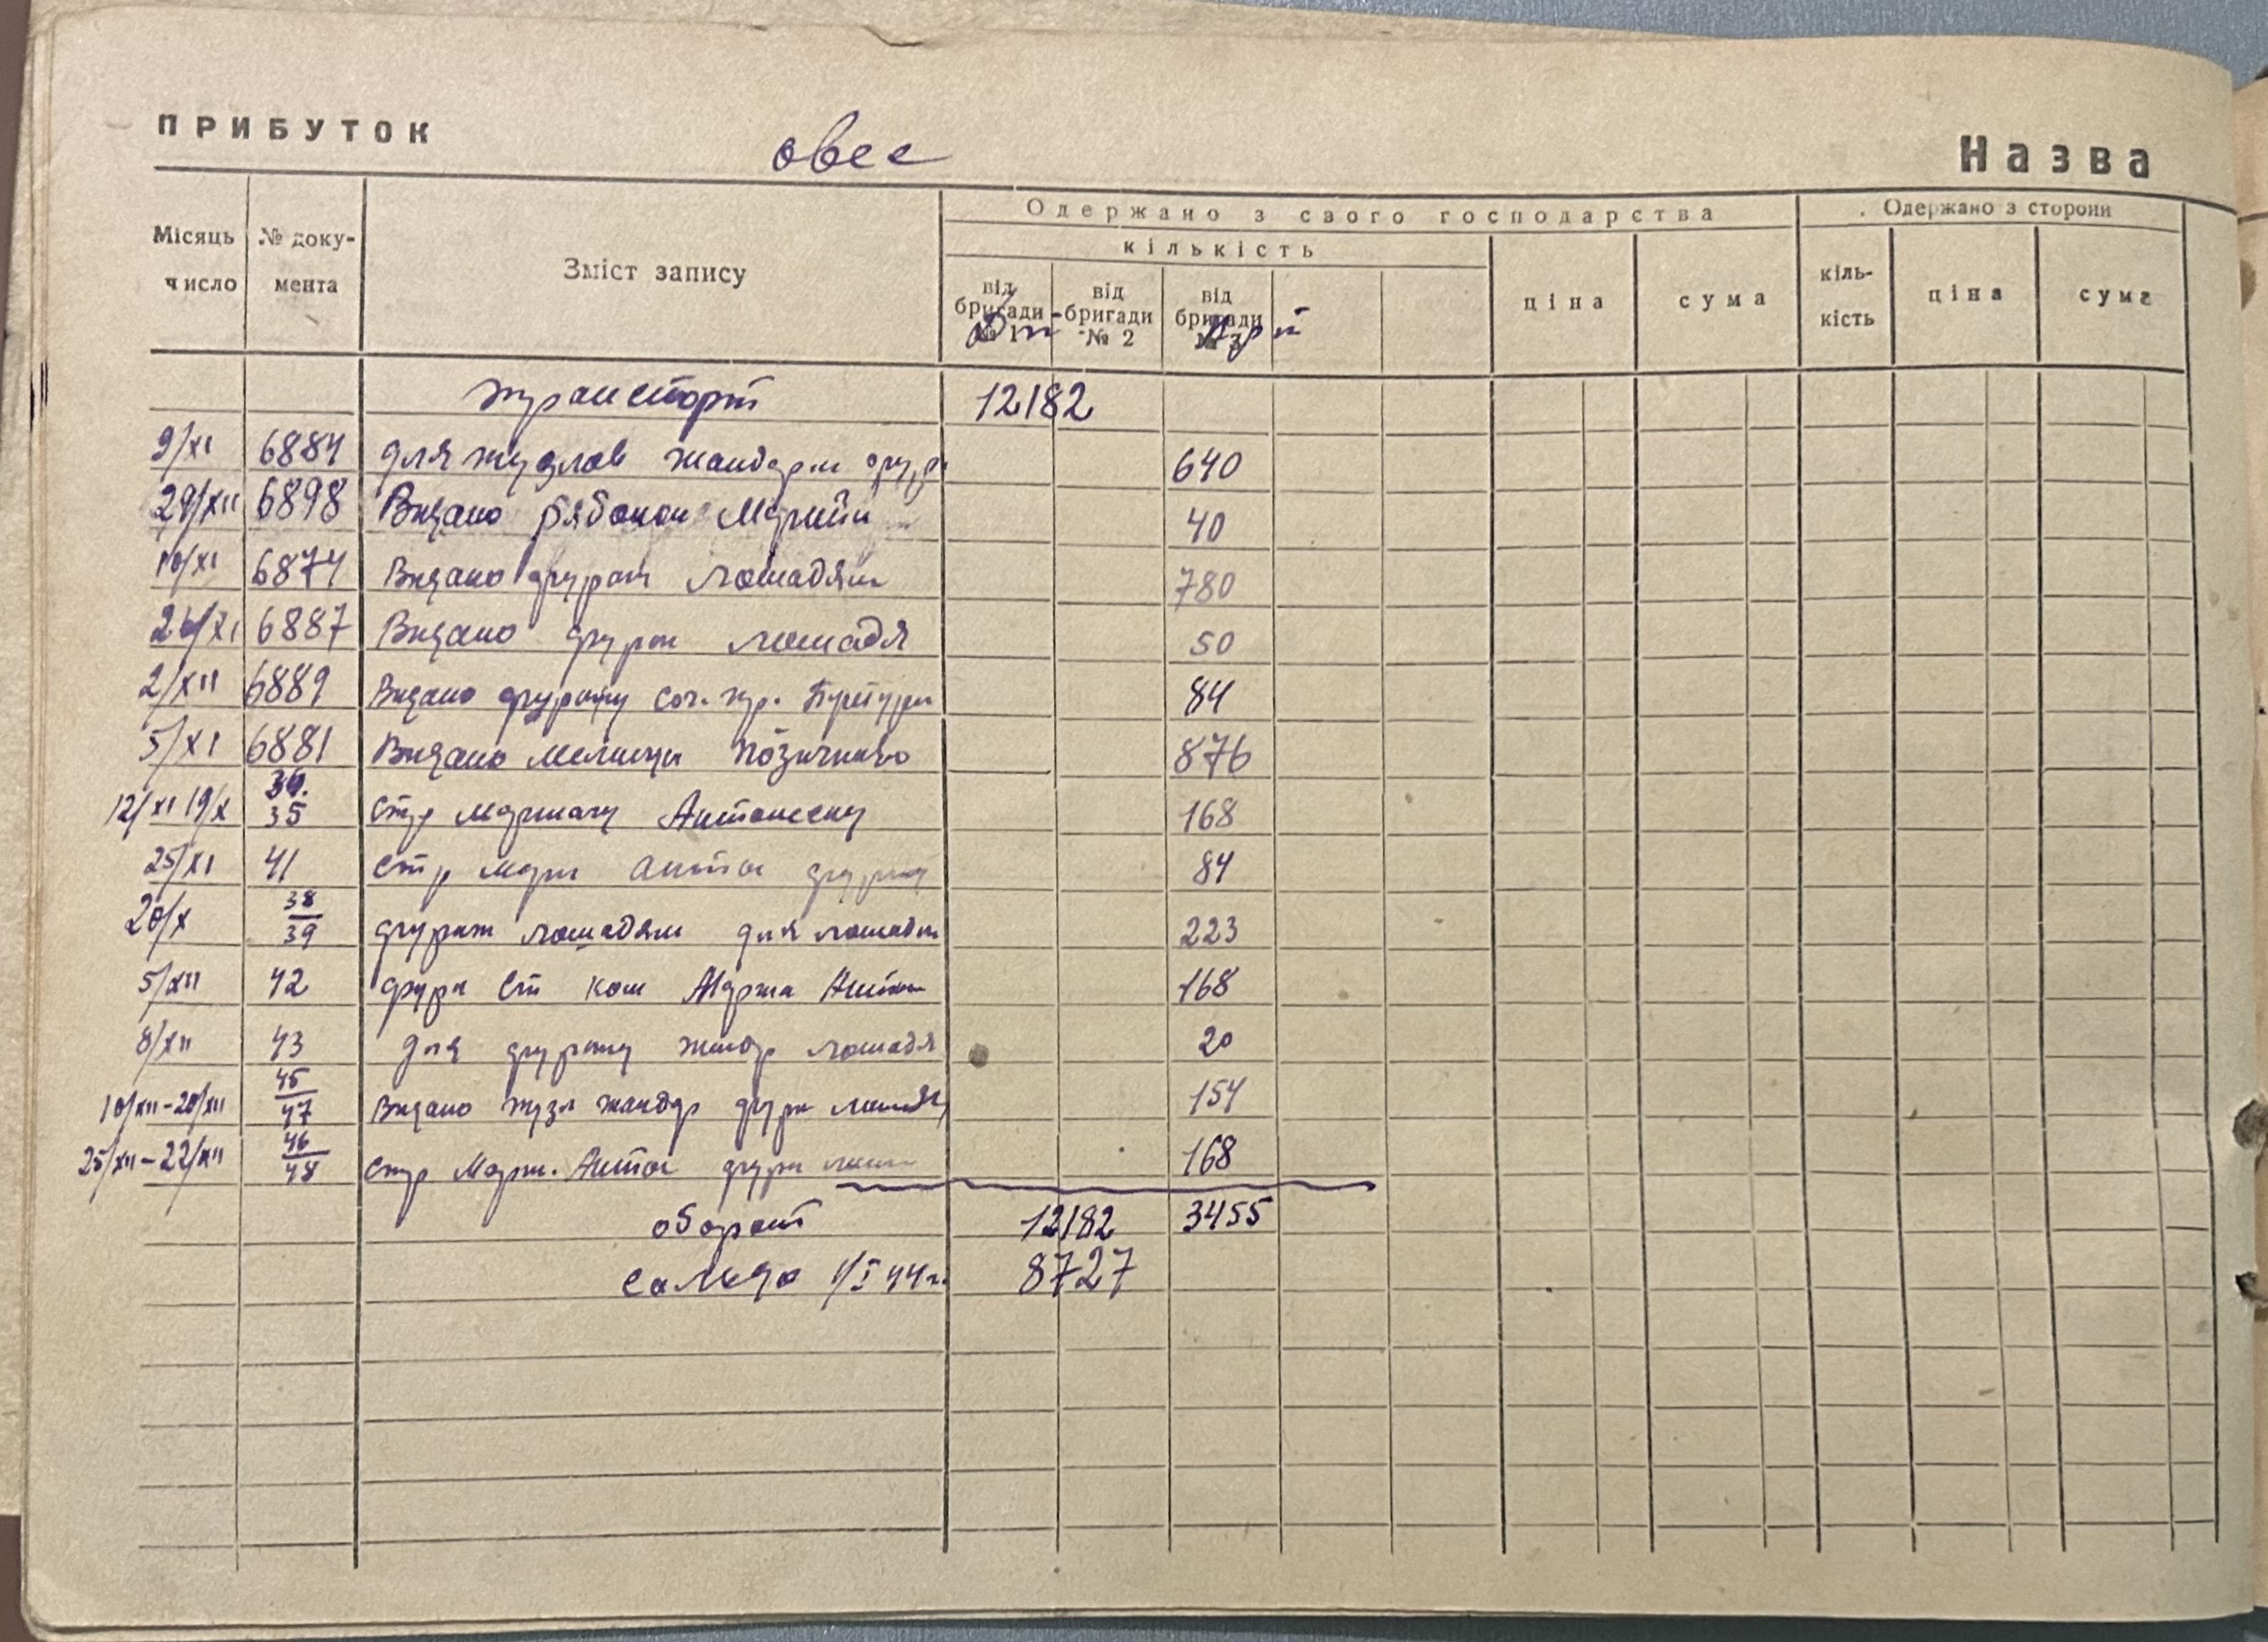 ПРИБУТОК
овес
Назва
Місяць число
№ документа
Зміст запису
Одержано з свого господарства
Одержано з сторони
кількість
від бригади № 1
від бригади № 2
від бригади № 3
ціна
сума
кіль-кість
ціна
сума
транспорт 12182
9/XI 6884 для жандарм 640
29/XII 6898 Видано Марийи 40
10/XI 6874 Видано фураж лошадям 780
26/XI 6887 Видано фураж лошадя 50
2/XII 6889 Видано фуражу 84
5/XI 6881 Видано позичково 876
12/XI 19/X 36. 35 стр Маршалу Антонеску 168
25/XI 41 стр Марш Антон фураж 84
20/X 38/39 фураж лошадям для лошадм 223
5/XII 42 фураж Ст ком Марша Антон 168
8/XII 43 для фуражу жанд лошадя 20
10/XII-20/XII 45/47 Видано жандар фураж 154
25/XII-22/XII 46/48 стр Марш. Антон фураж 168
оборот 12182 3455
сальдо 1/I 44 г. 8727